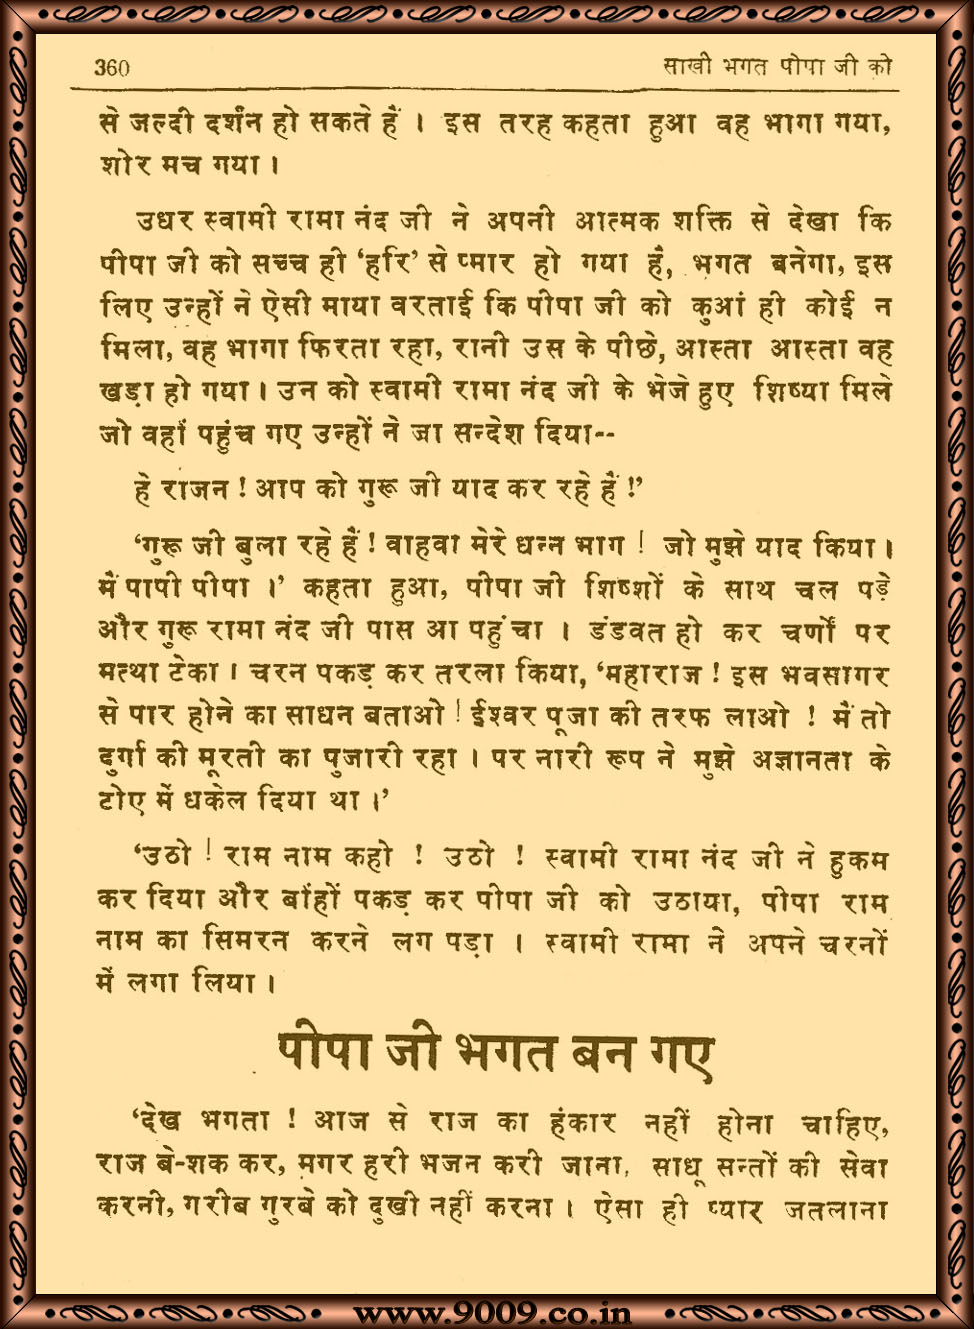 360 साखी भगत पीपा जी की
से जल्दी दर्शन हो सकते हैं । इस तरह कहता हुआ वह भागा गया,
शोर मच गया ।
उधर स्वामी रामा नंद जी ने अपनी आत्मक शक्ति से देखा कि
पीपा जी को सच्च ही ‘हरि’ से प्मार हो गया है, भगत बनेगा, इस
लिए उन्हों ने ऐसी माया वरताई कि पीपा जी को कुआं ही कोई न
मिला, वह भागा फिरता रहा, रानी उस के पीछे, आस्ता आस्ता वह
खड़ा हो गया । उन को स्वामी रामा नंद जी के भेजे हुए शिष्या मिले
जो वहां पहुंच गए उन्हों ने जा सन्देश दिया--
हे राजन ! आप को गुरू जी याद कर रहे हैं !’
‘गुरू जी बुला रहे हैं ! वाहवा मेरे धन्न भाग ! जो मुझे याद किया ।
मैं पापी पीपा ।’ कहता हुआ, पीपा जी शिष्शों के साथ चल पड़े
और गुरू रामा नंद जी पास आ पहुंचा । डंडवत हो कर चर्णों पर
मत्था टेका । चरन पकड़ कर तरला किया, ‘महाराज ! इस भवसागर
से पार होने का साधन बताओ ! ईश्वर पूजा की तरफ लाओ ! मैं तो
दुर्गा की मूरती का पुजारी रहा । पर नारी रूप ने मुझे अज्ञानता के
टोए में धकेल दिया था ।’
‘उठो ! राम नाम कहो ! उठो ! स्वामी रामा नंद जी ने हुकम
कर दिया और बांहों पकड़ कर पीपा जी को उठाया, पीपा राम
नाम का सिमरन करने लग पड़ा । स्वामी रामा ने अपने चरनों
में लगा लिया ।
पीपा जी भगत बन गए
‘देख भगता ! आज से राज का हंकार नहीं होना चाहिए,
राज बे-शक कर, मगर हरी भजन करी जाना, साधू सन्तों की सेवा
करनी, गरीब गुरबे को दुखी नहीं करना । ऐसा ही प्यार जतलाना
www.9009.co.in